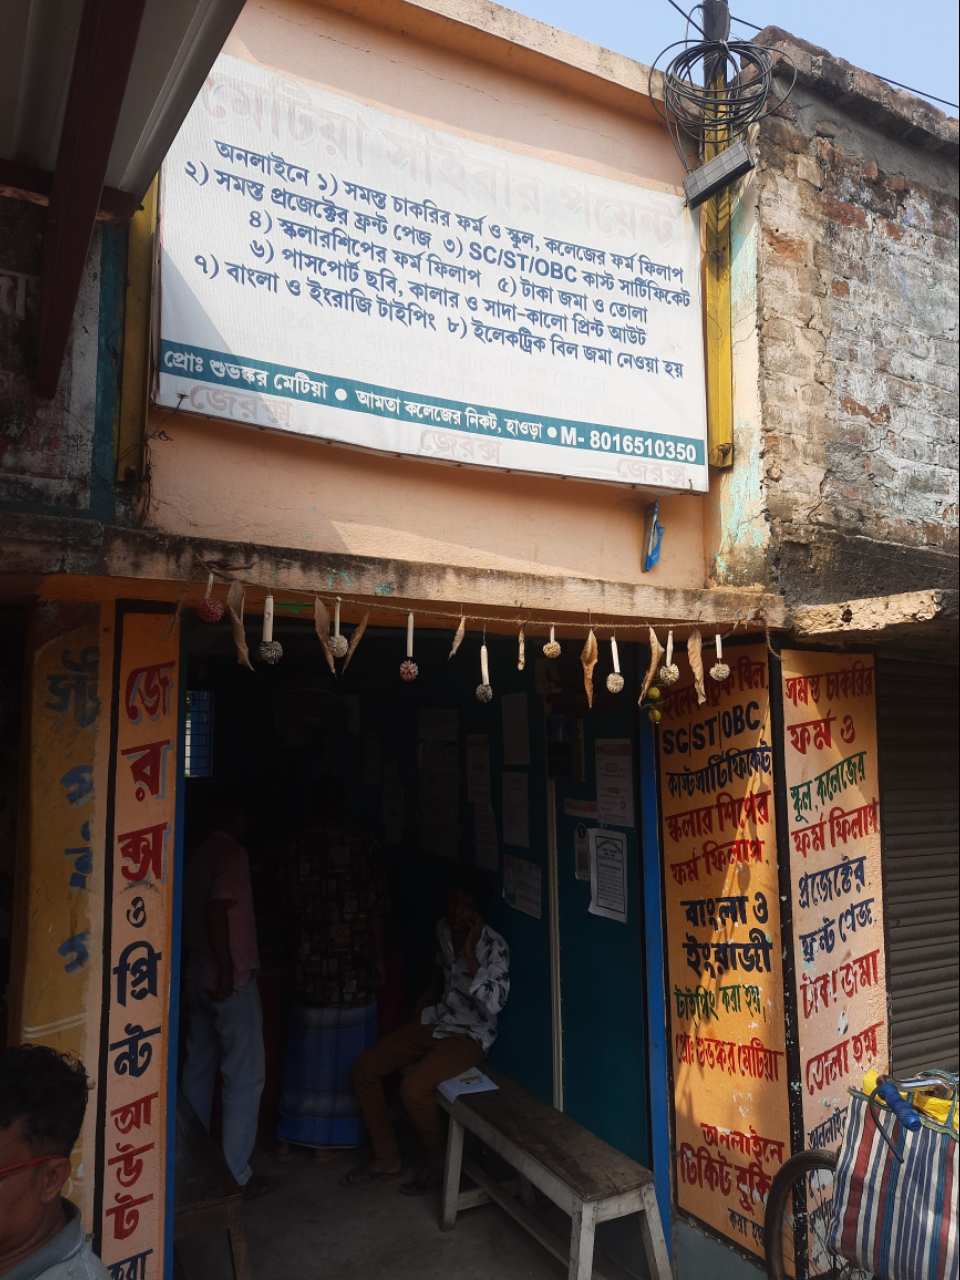 মেটিয়া সাইবার পয়েন্ট
অনলাইনে ১) সমস্ত চাকরির ফর্ম ও স্কুল, কলেজের ফর্ম ফিলাপ
২) সমস্ত প্রজেক্টের ফ্রন্ট পেজ ৩) SC/ST/OBC কাস্ট সার্টিফিকেট
৪) স্কলারশিপের ফর্ম ফিলাপ ৫) টাকা জমা ও তোলা
৬) পাসপোর্ট ছবি, কালার ও সাদা-কালো প্রিন্ট আউট
৭) বাংলা ও ইংরাজি টাইপিং ৮) ইলেকট্রিক বিল জমা নেওয়া হয়
প্রোঃ শুভঙ্কর মেটিয়া ● আমতা কলেজের নিকট, হাওড়া ● M- 8016510350
জেরক্স
জেরক্স
জেরক্স
জে
র
ক্স
ও
প্রি
ন্ট
আ
উ
ট
করা
বিল
SC/ST/OBC
কাস্টসার্টিফিকেট
স্কলার শিপের
ফর্ম ফিলাপ
বাংলা ও
ইংরাজী
টাইপিং করা হয়
প্রোঃ শুভঙ্কর মেটিয়া
অনলাইনে
টিকিট বুকিং
করা হয়
সমস্ত চাকরির
ফর্ম ও
স্কুল, কলেজের
ফর্ম ফিলাপ
প্রজেক্টের
ফ্রন্ট পেজ
টাকা জমা
তোলা হয়